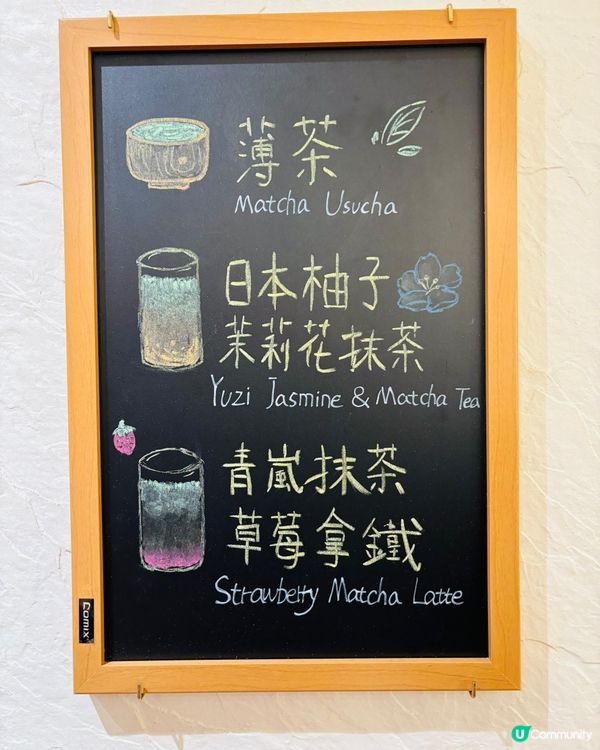 薄茶
Matcha Usucha
日本柚子
茉莉花抹茶
Yuzi Jasmine & Matcha Tea
青嵐抹茶
草莓拿鐵
Strawberry Matcha Latte
comix
U Community